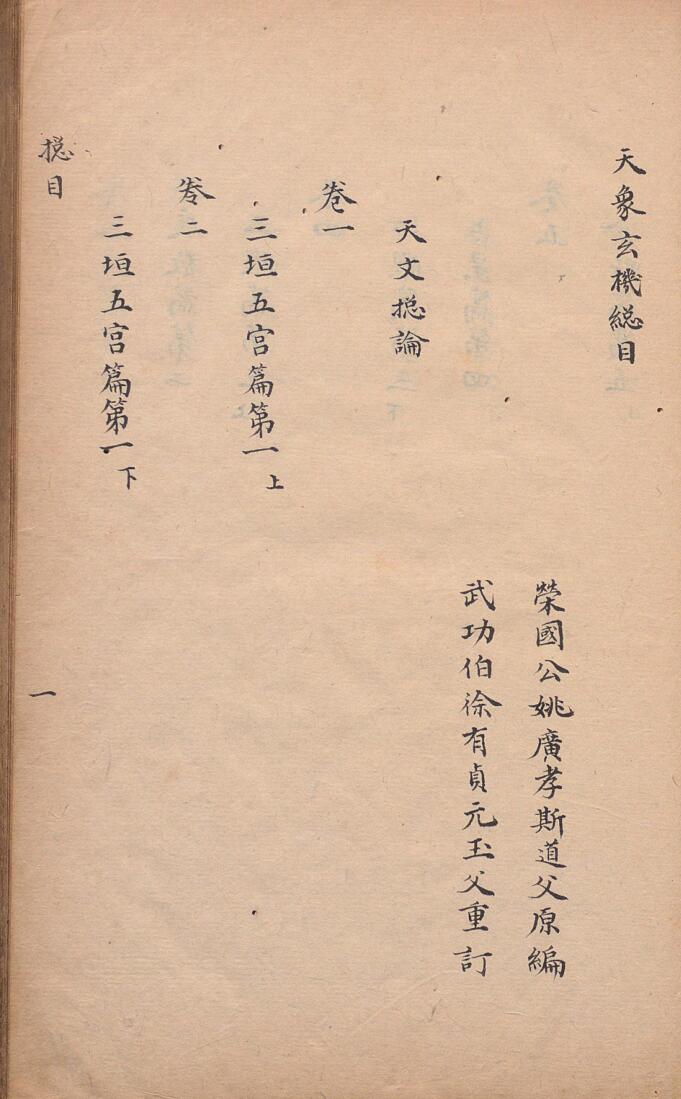 天象玄機緫目
榮國公姚廣孝斯道父原編
武功伯徐有貞元玉父重訂
天文揔論
卷一
三垣五宮篇第一上
卷二
三垣五宮篇第一下
揔目
一